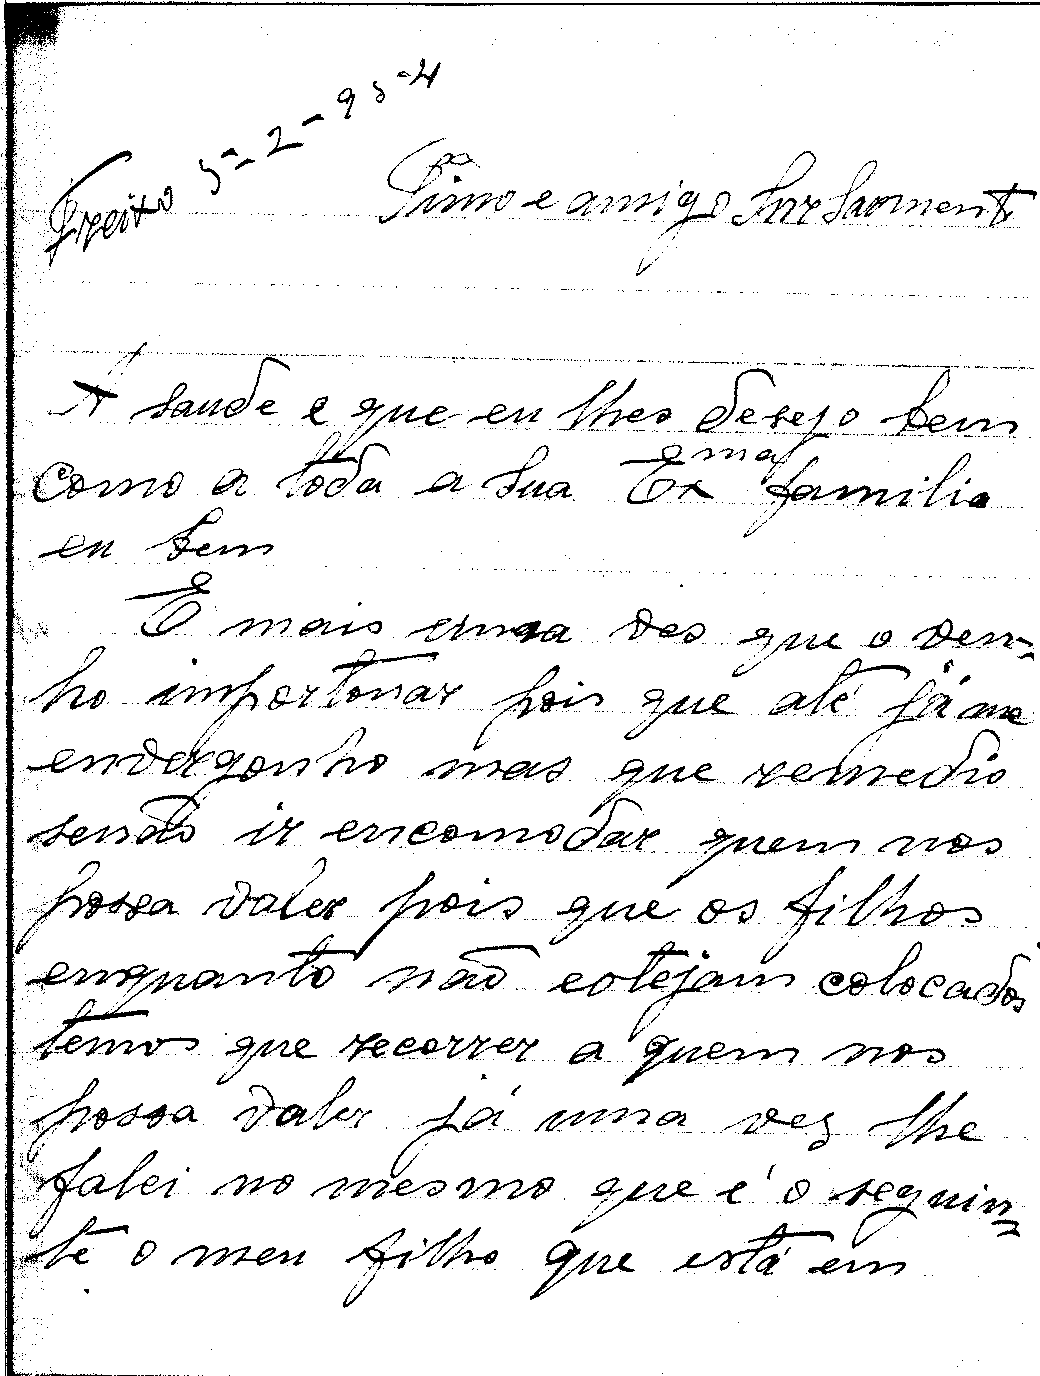 Freixo 5-2-95-4
Primo e amigo Snr Sarment
A saude é que eu lhes desejo bem
como a toda a sua Exma familia
eu bem
É mais uma ves que o ven-
ho importonar pois que até já me
envergonho mas que remedio
senão ir encomodar quem nos
possa valer pois que os filhos
enquanto não estejam colocados
temos que recorrer a quem nos
possa valer já uma vez lhe
falei no mesmo que é o seguin-
te o meu filho que está em